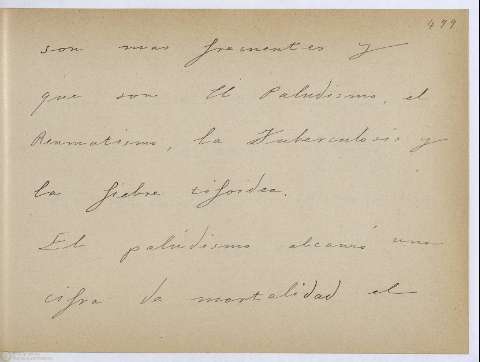 499
son mas frecuentes y
que son El Paludismo, el
Reumatismo, la Tuberculosis y
la fiebre tifoidea.
El paludismo alcanzó una
cifra de mortalidad el